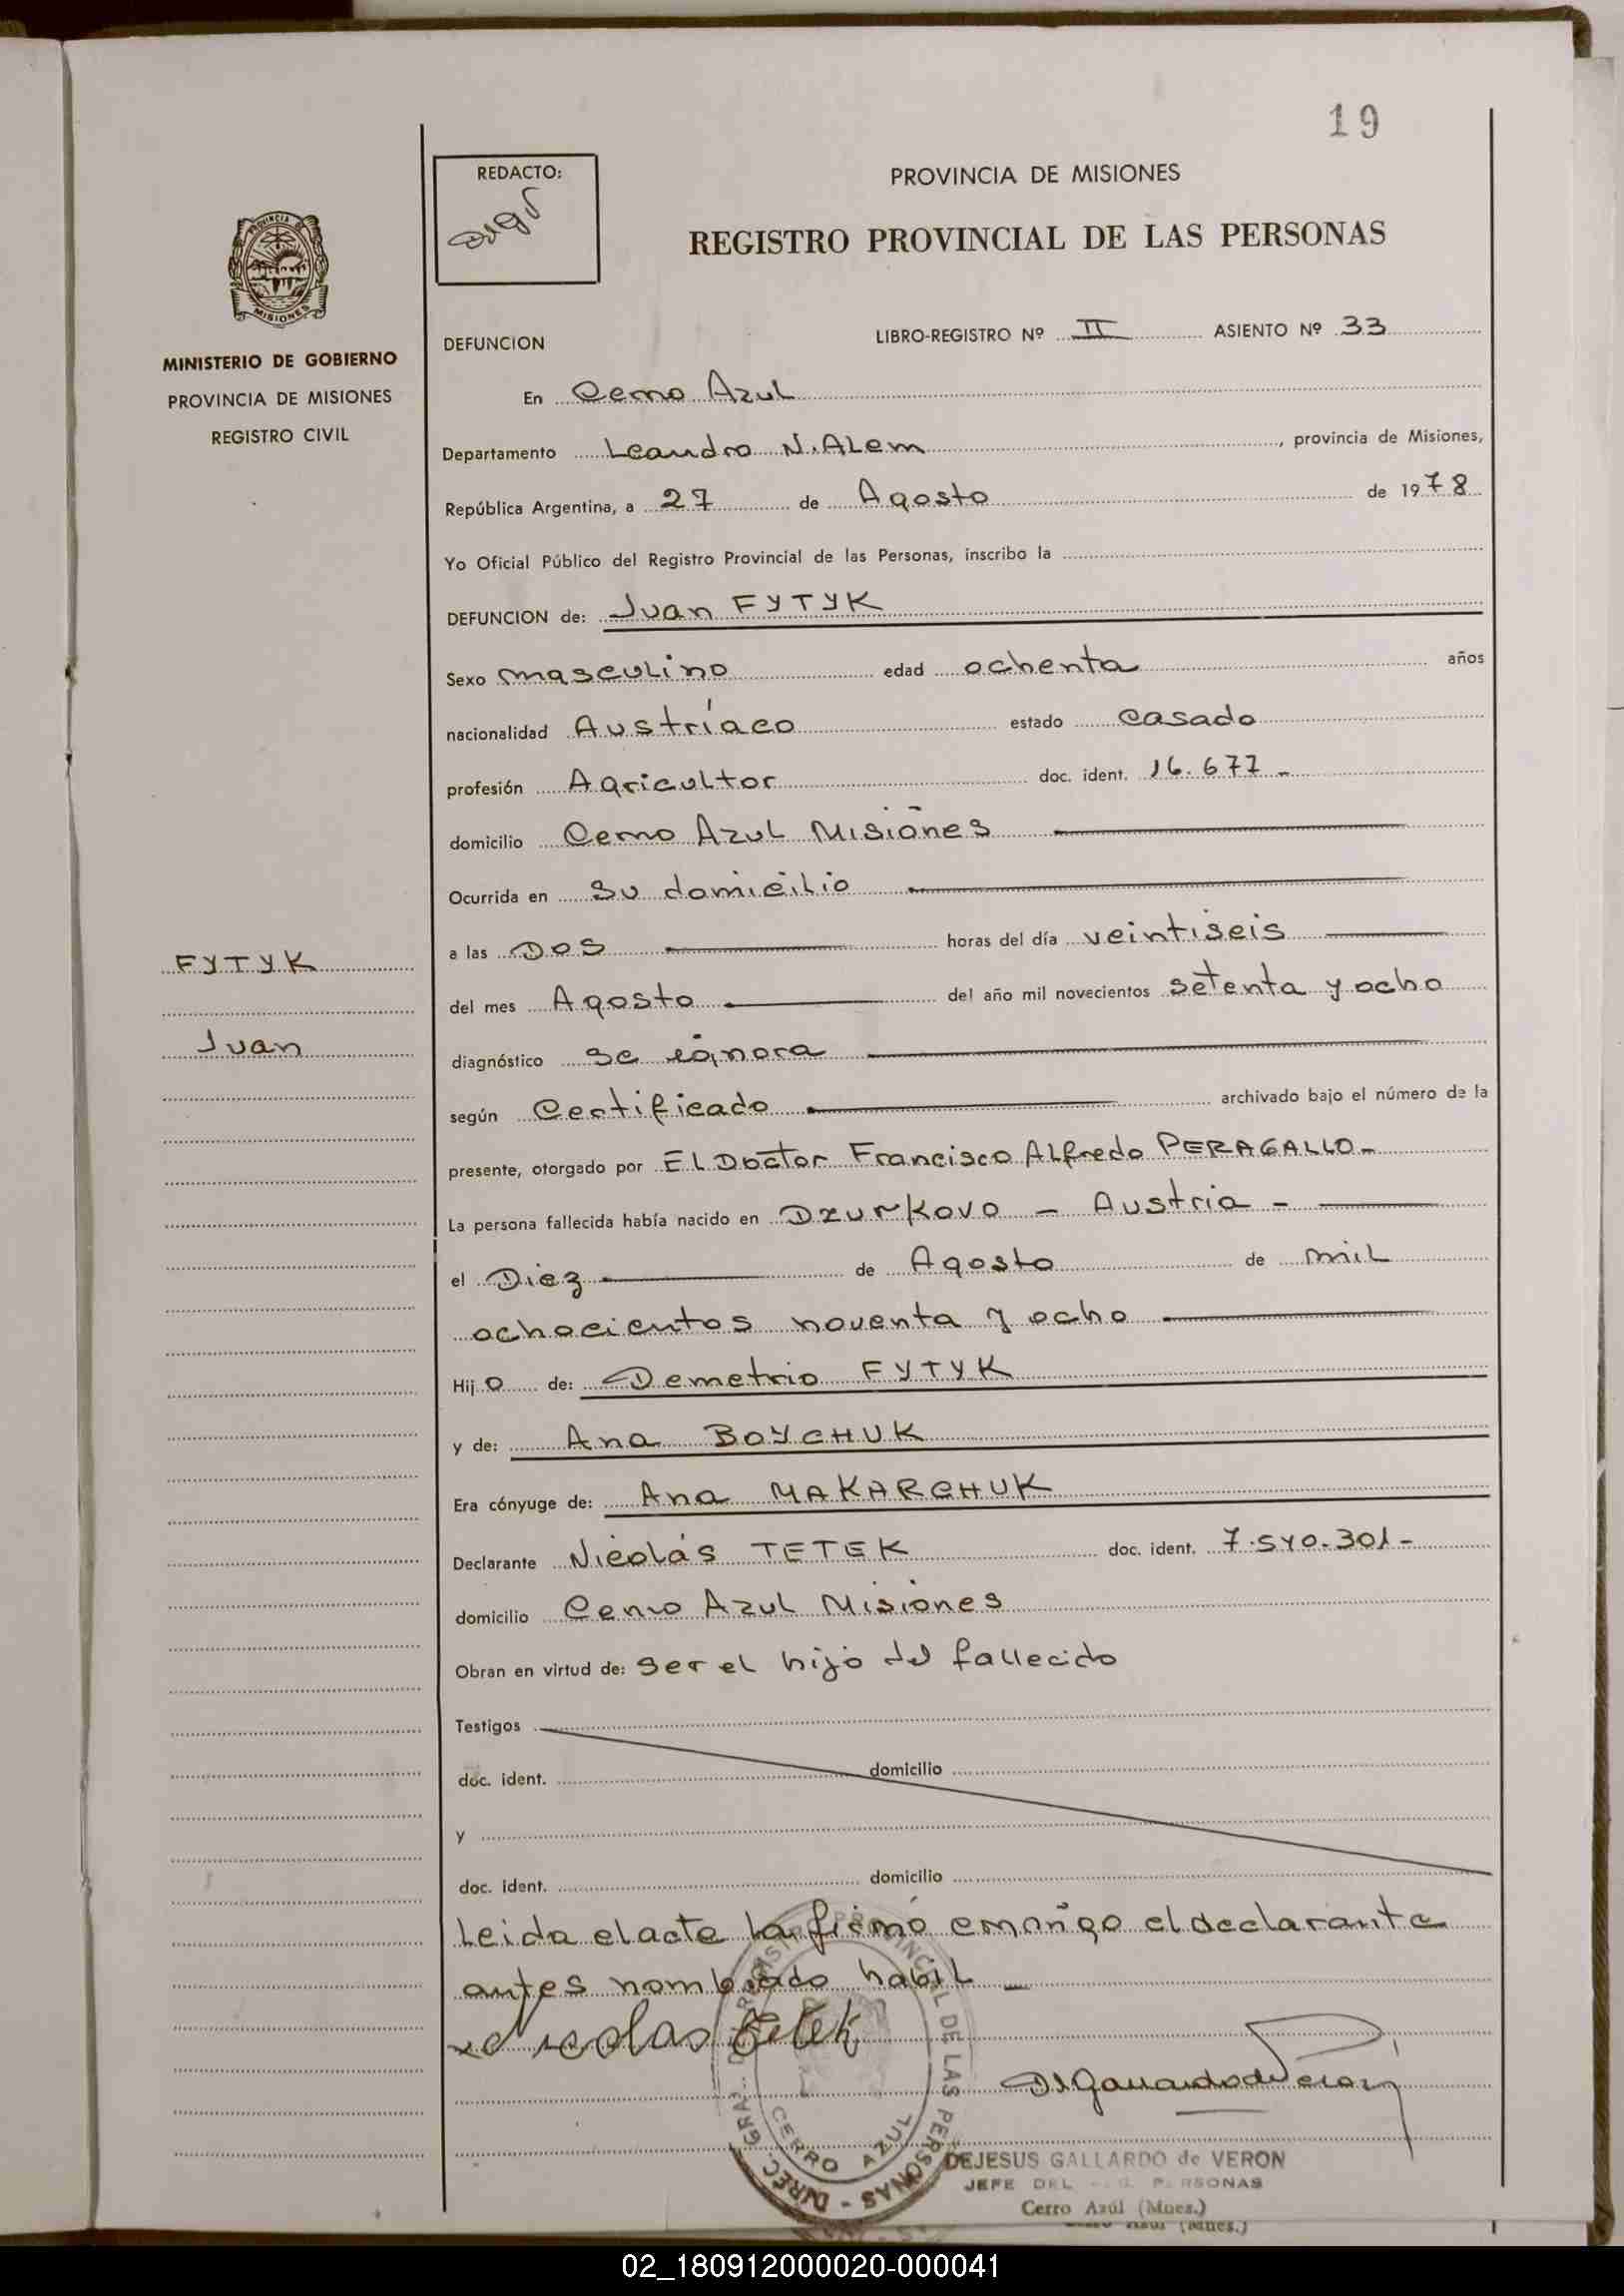 19
REDACTO:
PROVINCIA DE MISIONES
REGISTRO PROVINCIAL DE LAS PERSONAS
PROVINCIA DE
MISIONES
MINISTERIO DE GOBIERNO
PROVINCIA DE MISIONES
REGISTRO CIVIL
DEFUNCION LIBRO-REGISTRO Nº II ASIENTO Nº 33
En Cerro Azul
Departamento Leandro N. ALem, provincia de Misiones,
República Argentina, a 27 de Agosto de 1978
Yo Oficial Público del Registro Provincial de las Personas, inscribo la
DEFUNCION de: Juan FYTYK
Sexo masculino edad ochenta años
nacionalidad Austríaco estado casado
profesión Agricultor doc. ident. 16.677 -
domicilio Cerro Azul Misiones
Ocurrida en su domicilio
a las Dos horas del día veintiseis
del mes Agosto del año mil novecientos setenta y ocho
diagnóstico se ignora
según Certificado archivado bajo el número de la
presente, otorgado por EL Doctor Francisco ALfredo PERAGALLO-
La persona fallecida había nacido en Dzurkovo - Austria -
el Diez de Agosto de mil
ochocientos noventa y ocho
Hijo de: Demetrio FYTYK
y de: Ana BOYCHUK
Era cónyuge de: Ana MAKARCHUK
Declarante Nicolás TETEK doc. ident. 7.540.301-
domicilio Cerro Azul Misiones
Obran en virtud de: ser el hijo del fallecido
Testigos
doc. ident. domicilio
y
doc. ident. domicilio
Leida el acta la firmó conmigo el declarante
antes nombrado habil -
Nicolas Tetek
FYTYK
Juan
CERRO AZUL
DEJESUS GALLARDO de VERON
JEFE DEL PERSONAS
Cerro Azúl (Mnes.)
02_180912000020-000041